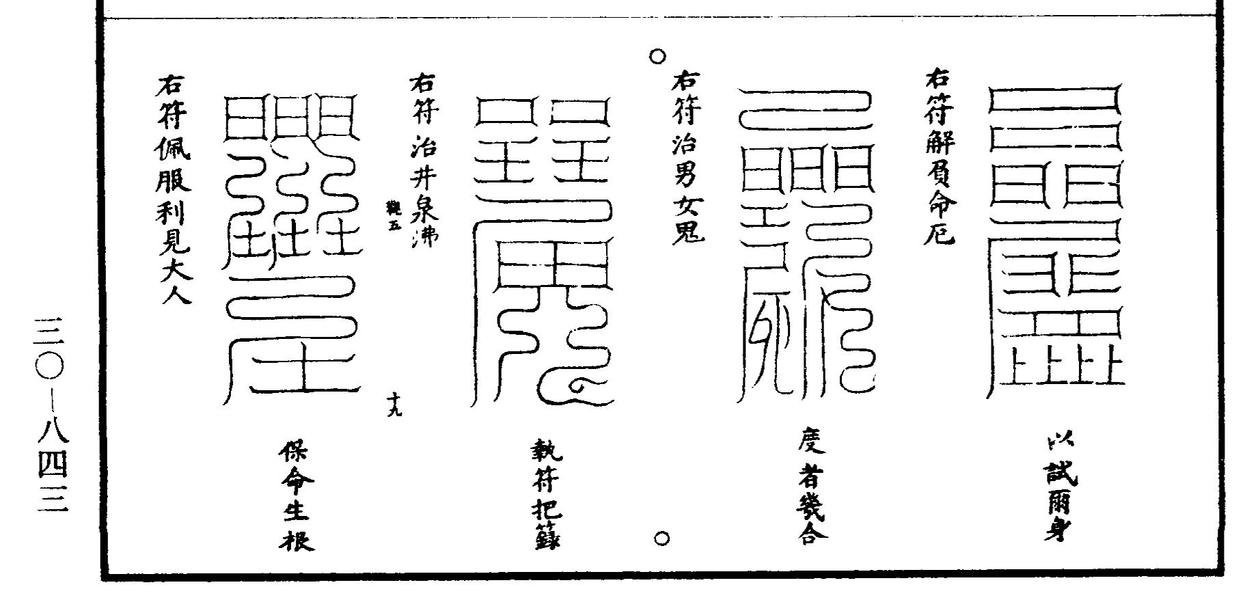 以試爾身
右符解負命厄
度者幾合
右符治男女鬼
執符把籙
右符治井泉沸
五
十九
保命生根
右符佩服利見大人
三〇—八四三